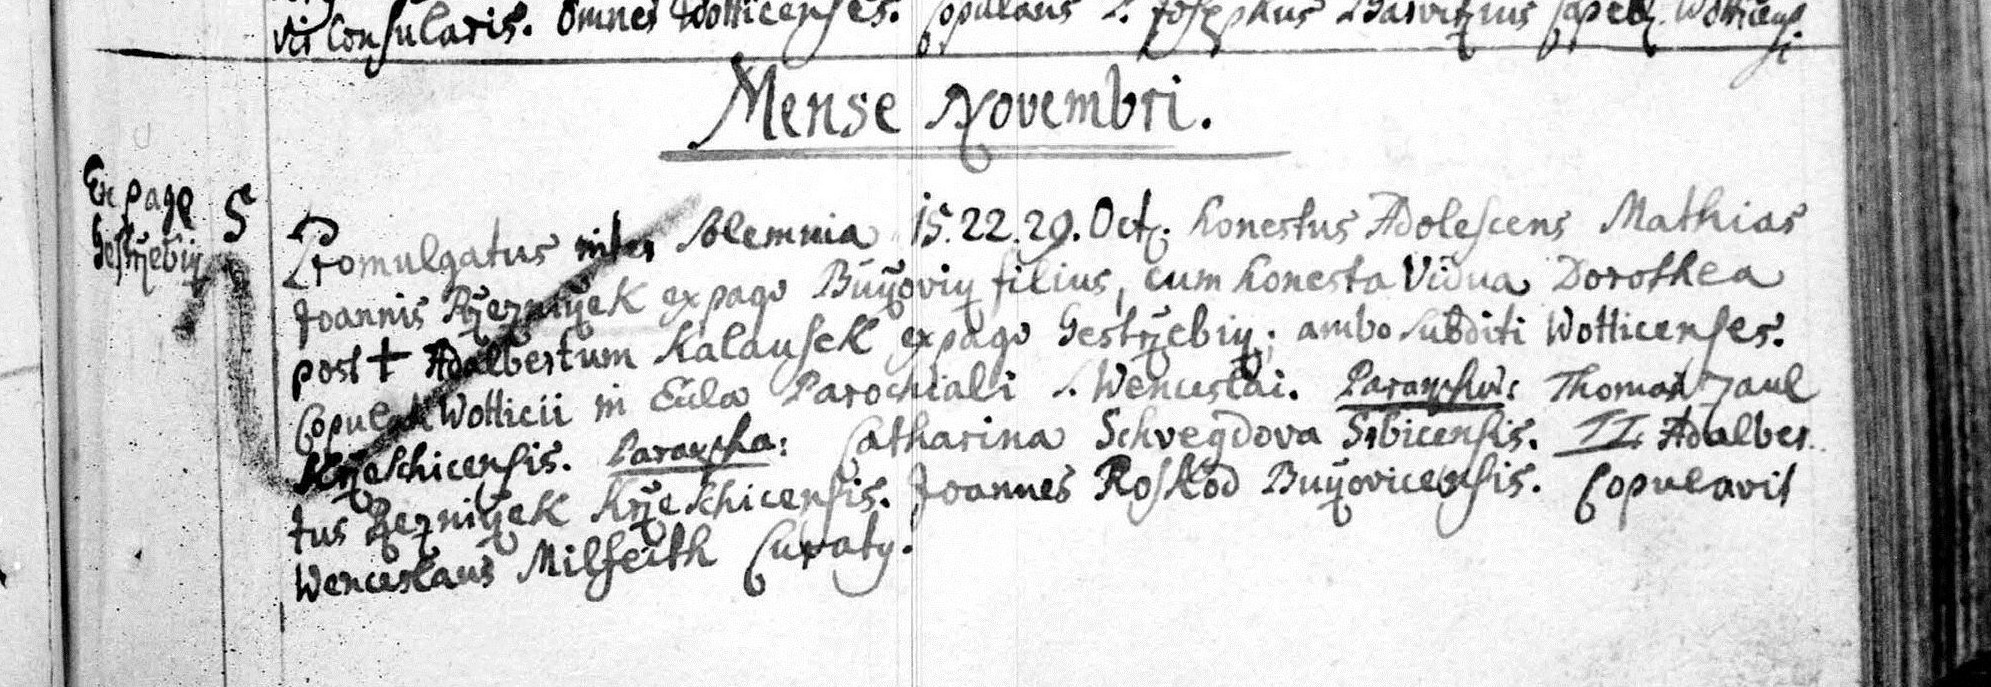 vir Consularis. Omnes Wotticenses. Copulans P. Josephus Capell. Wotticensi
Mense Novembri.
Ex pago
Gestržebiy
5
Promulgatus inter solemnia 15. 22. 29. Oct. honestus Adolescens Mathias
Joannis Ržezniček ex pago Buyoviy filius, cum honesta Vidua Dorothea
post † Adalbertum Kalausek ex pago Gestržebiy; ambo subditi Wotticenses.
Copulati Wotticii in Ecla Parochiali S. Wenceslai. Paranymphus: Thomas Jaul
Kržeschicensis. Paranympha: Catharina Schvegdova Srbicensis. II. Adalber
tus Ržezniček Kržeschicensis. Joannes Roskod Buyovicensis. Copulavit
Wenceslaus Milfeith Curatg.